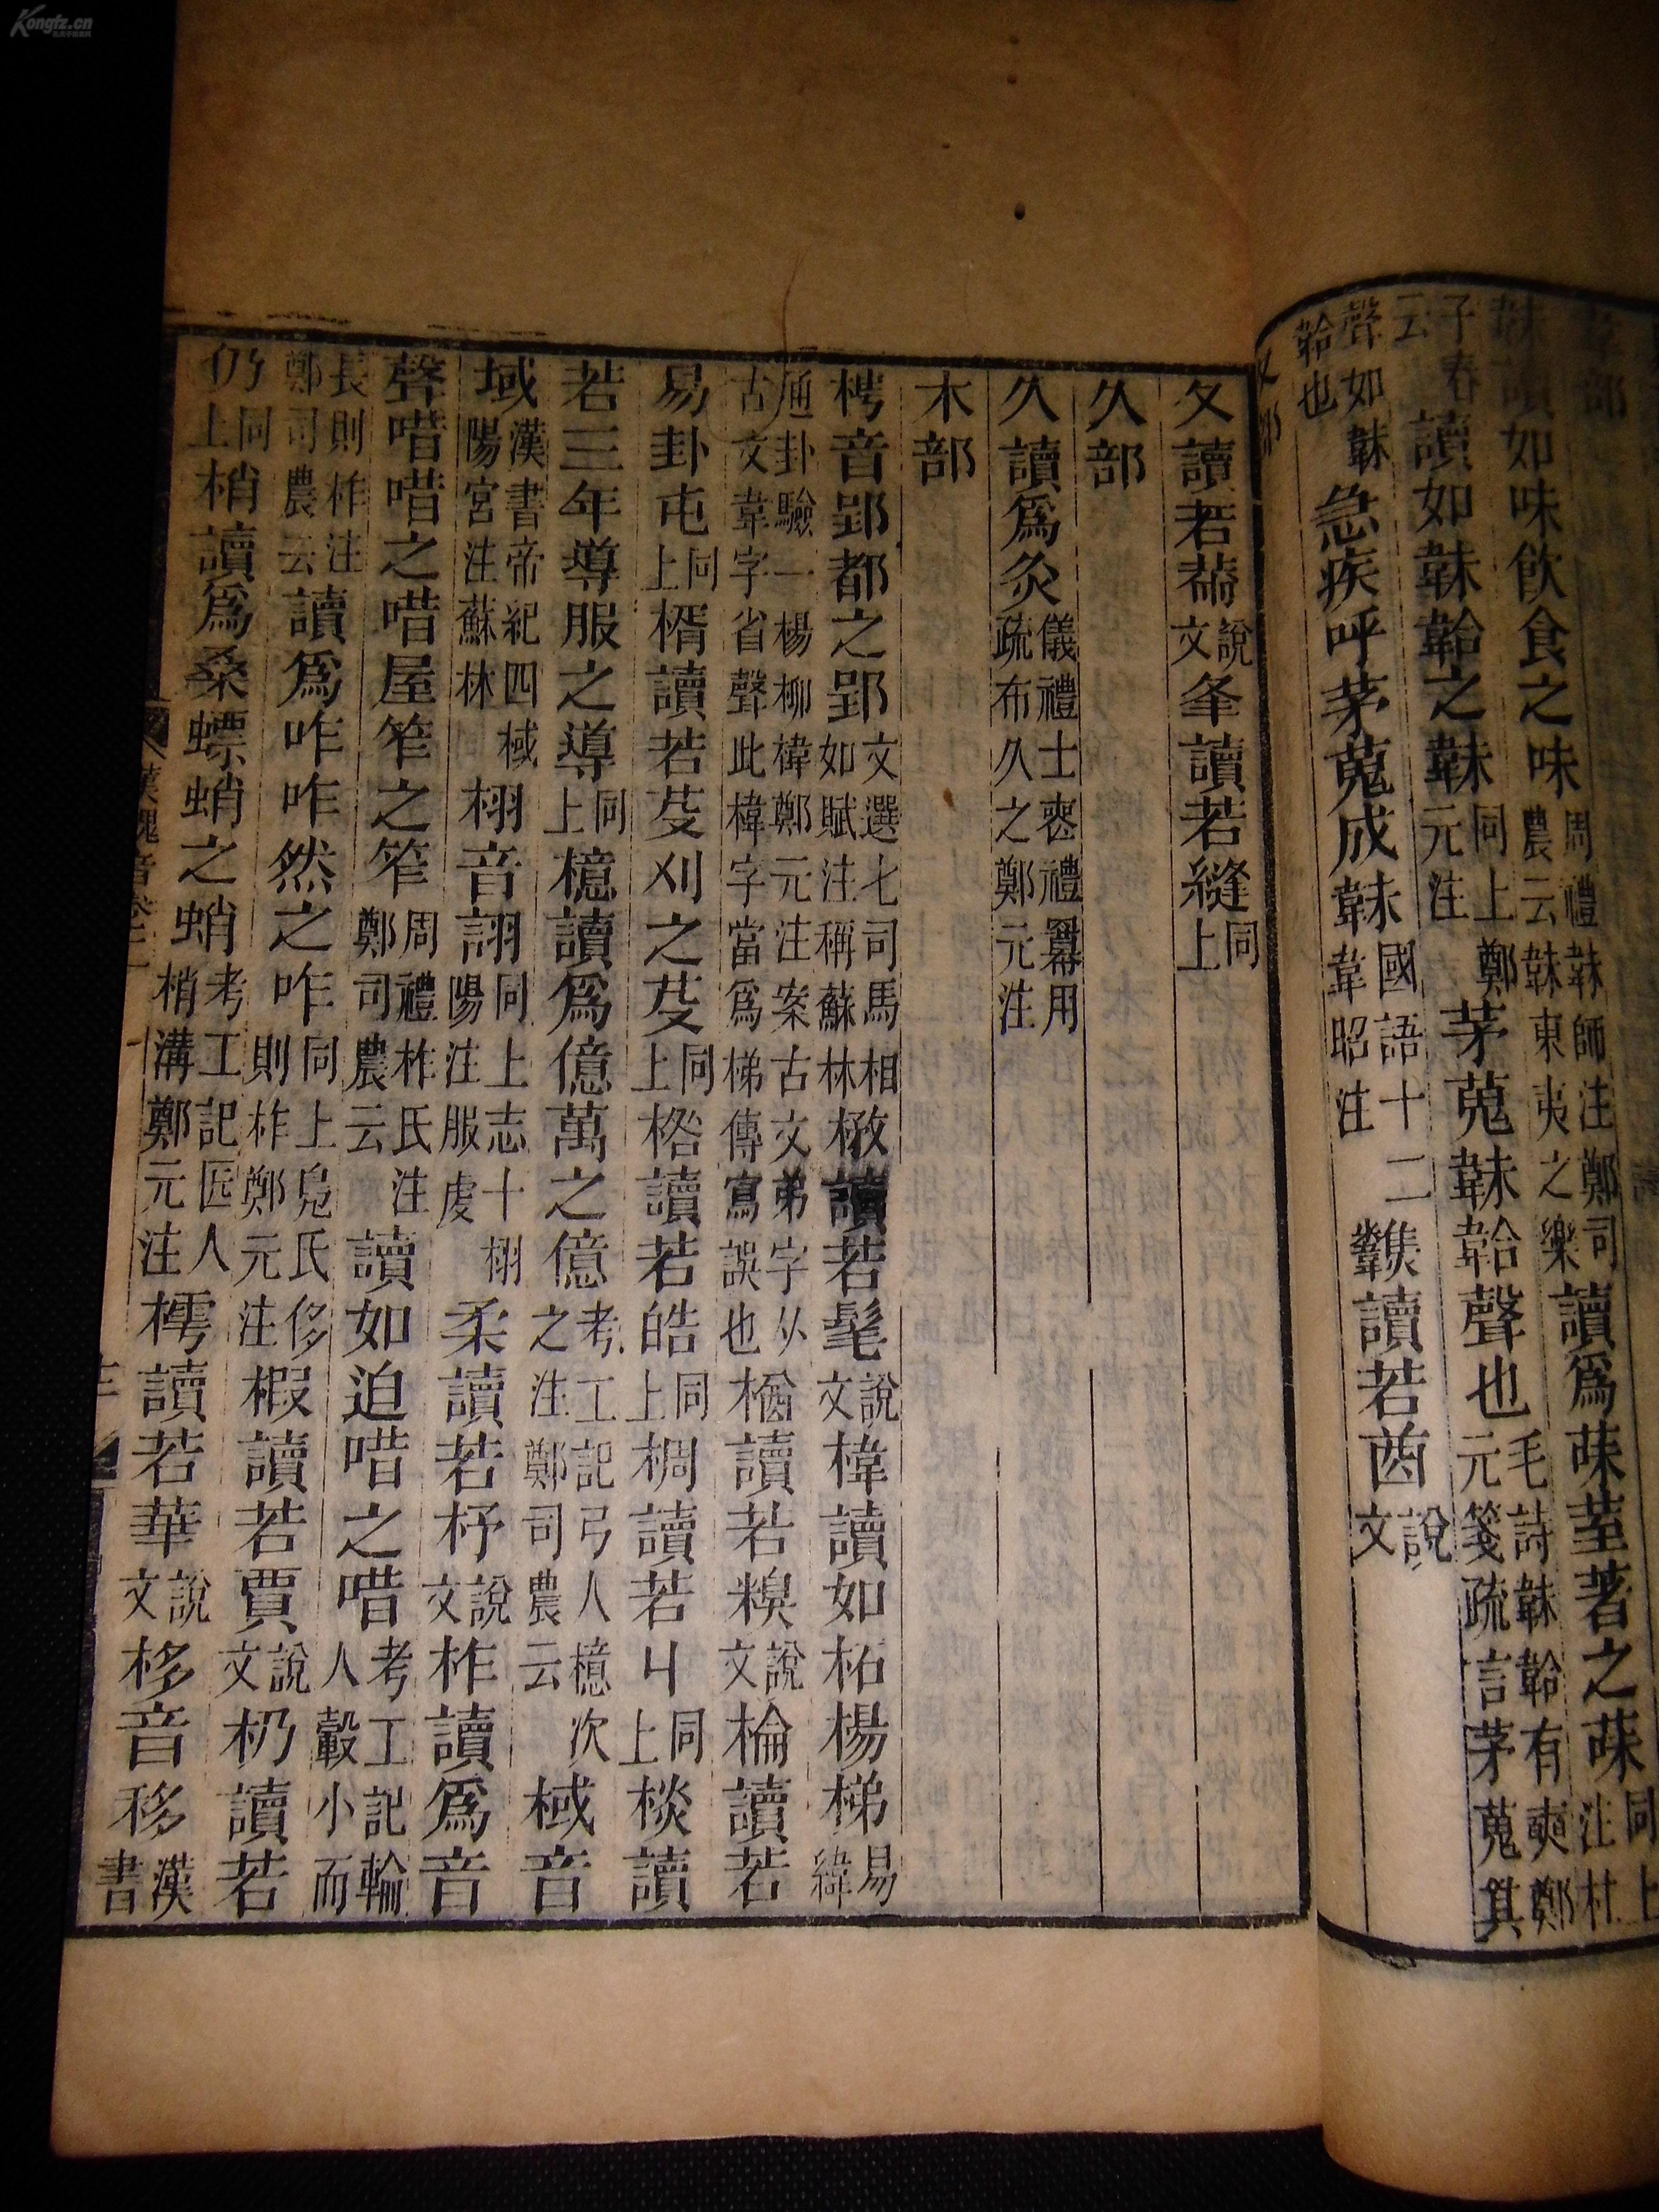 韋部
韎讀如味飲食之味周禮韎師注鄭司農云韎東夷之樂讀爲菋荎著之菋同上注杜
子春云讀如韎韐之韎同上鄭元注茅蒐韎韐聲也毛詩韎韐有奭鄭元箋疏言茅蒐其
聲如韎韐也急疾呼茅蒐成韎國語十二韋昭注讀若酋說文
夂讀若黹說文夆讀若縫同上
久部
久讀爲灸儀禮士喪禮冪用疏布久之鄭元注
木部
樗音郢都之郢文選七司馬相如賦注稱蘇林楘讀若髦說文椲讀如柘楊梯易緯
通卦驗一楊柳椲鄭元注案古文弟字从古文韋字省聲此椲字當爲梯傳寫誤也楢讀若糗說文棆讀若
易卦屯同上楈讀若芟刈之芟同上楁讀若皓同上椆讀若丩同上棪讀
若三年導服之導同上檍讀爲億萬之億考工記弓人檍次之注鄭司農云棫音
域漢書帝紀四棫陽宮注蘇林栩音詡同上志十栩陽注服虔柔讀若杼說文柞讀爲音
聲唶唶之唶屋笮之笮周禮柞氏注鄭司農云讀如迫唶之唶考工記輪人轂小而
長則柞注鄭司農云讀爲咋咋然之咋同上鳧氏侈則柞鄭元注椵讀若賈說文杒讀若
仍同上梢讀爲桑螵蛸之蛸考工記匠人梢溝鄭元注樗讀若華說文栘音移漢書
漢魏音卷二
Kongfz.cn